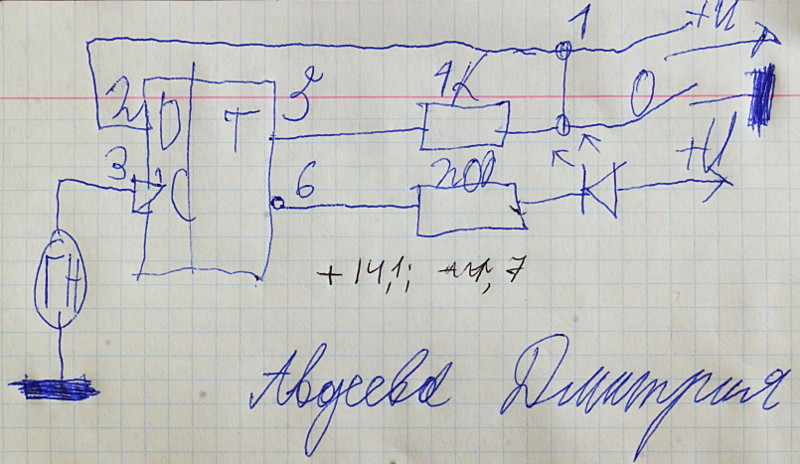 1 +U
2 D T 5 1K 0
3 C 6 200 +U
ГИ
+14,1;
Авдеева Дмитрия